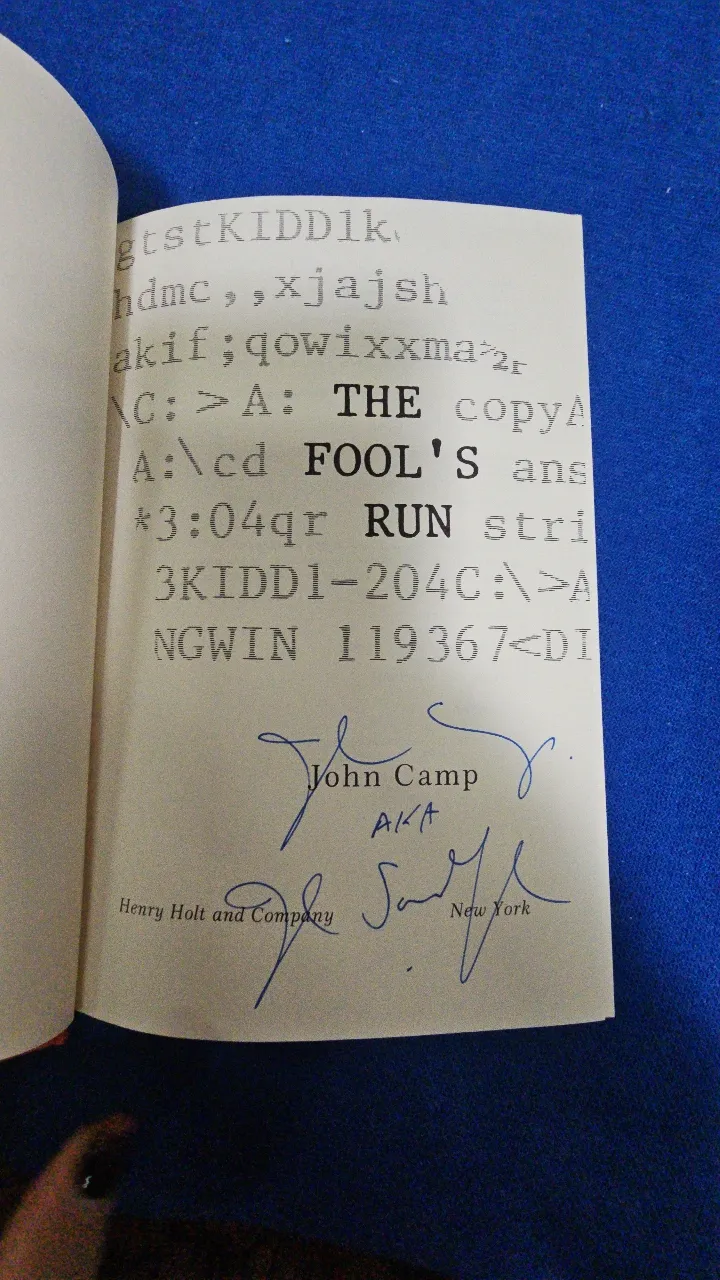 gtstKIDD1k
hdmc,,xjajsh
akif;qowixxma*2r
\C:>A: THE copyA
A:\cd FOOL'S ans
*3:04qr RUN stri
3KIDD1-204C:\>A
NGWIN 119367<DI
John Camp
John Camp
AKA
John Sandford
Henry Holt and Company New York